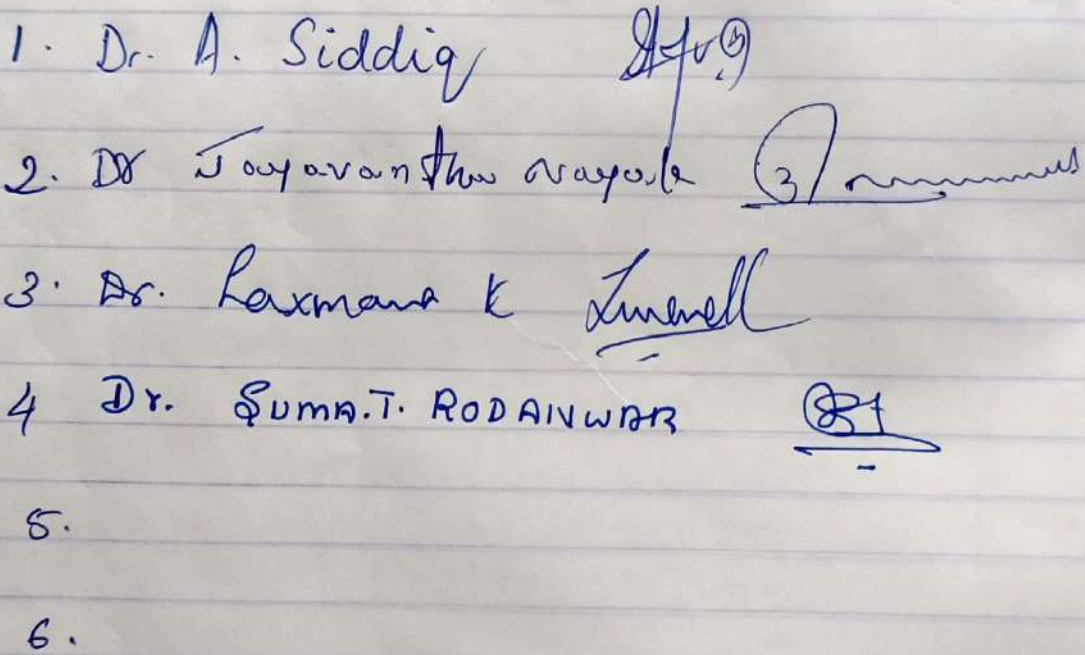 1. Dr. A. Siddiq
2. Dr Jayavantha Nayak
3. Dr. Laxmana K
4 Dr. SUMA.T. RODANWAR
5.
6.